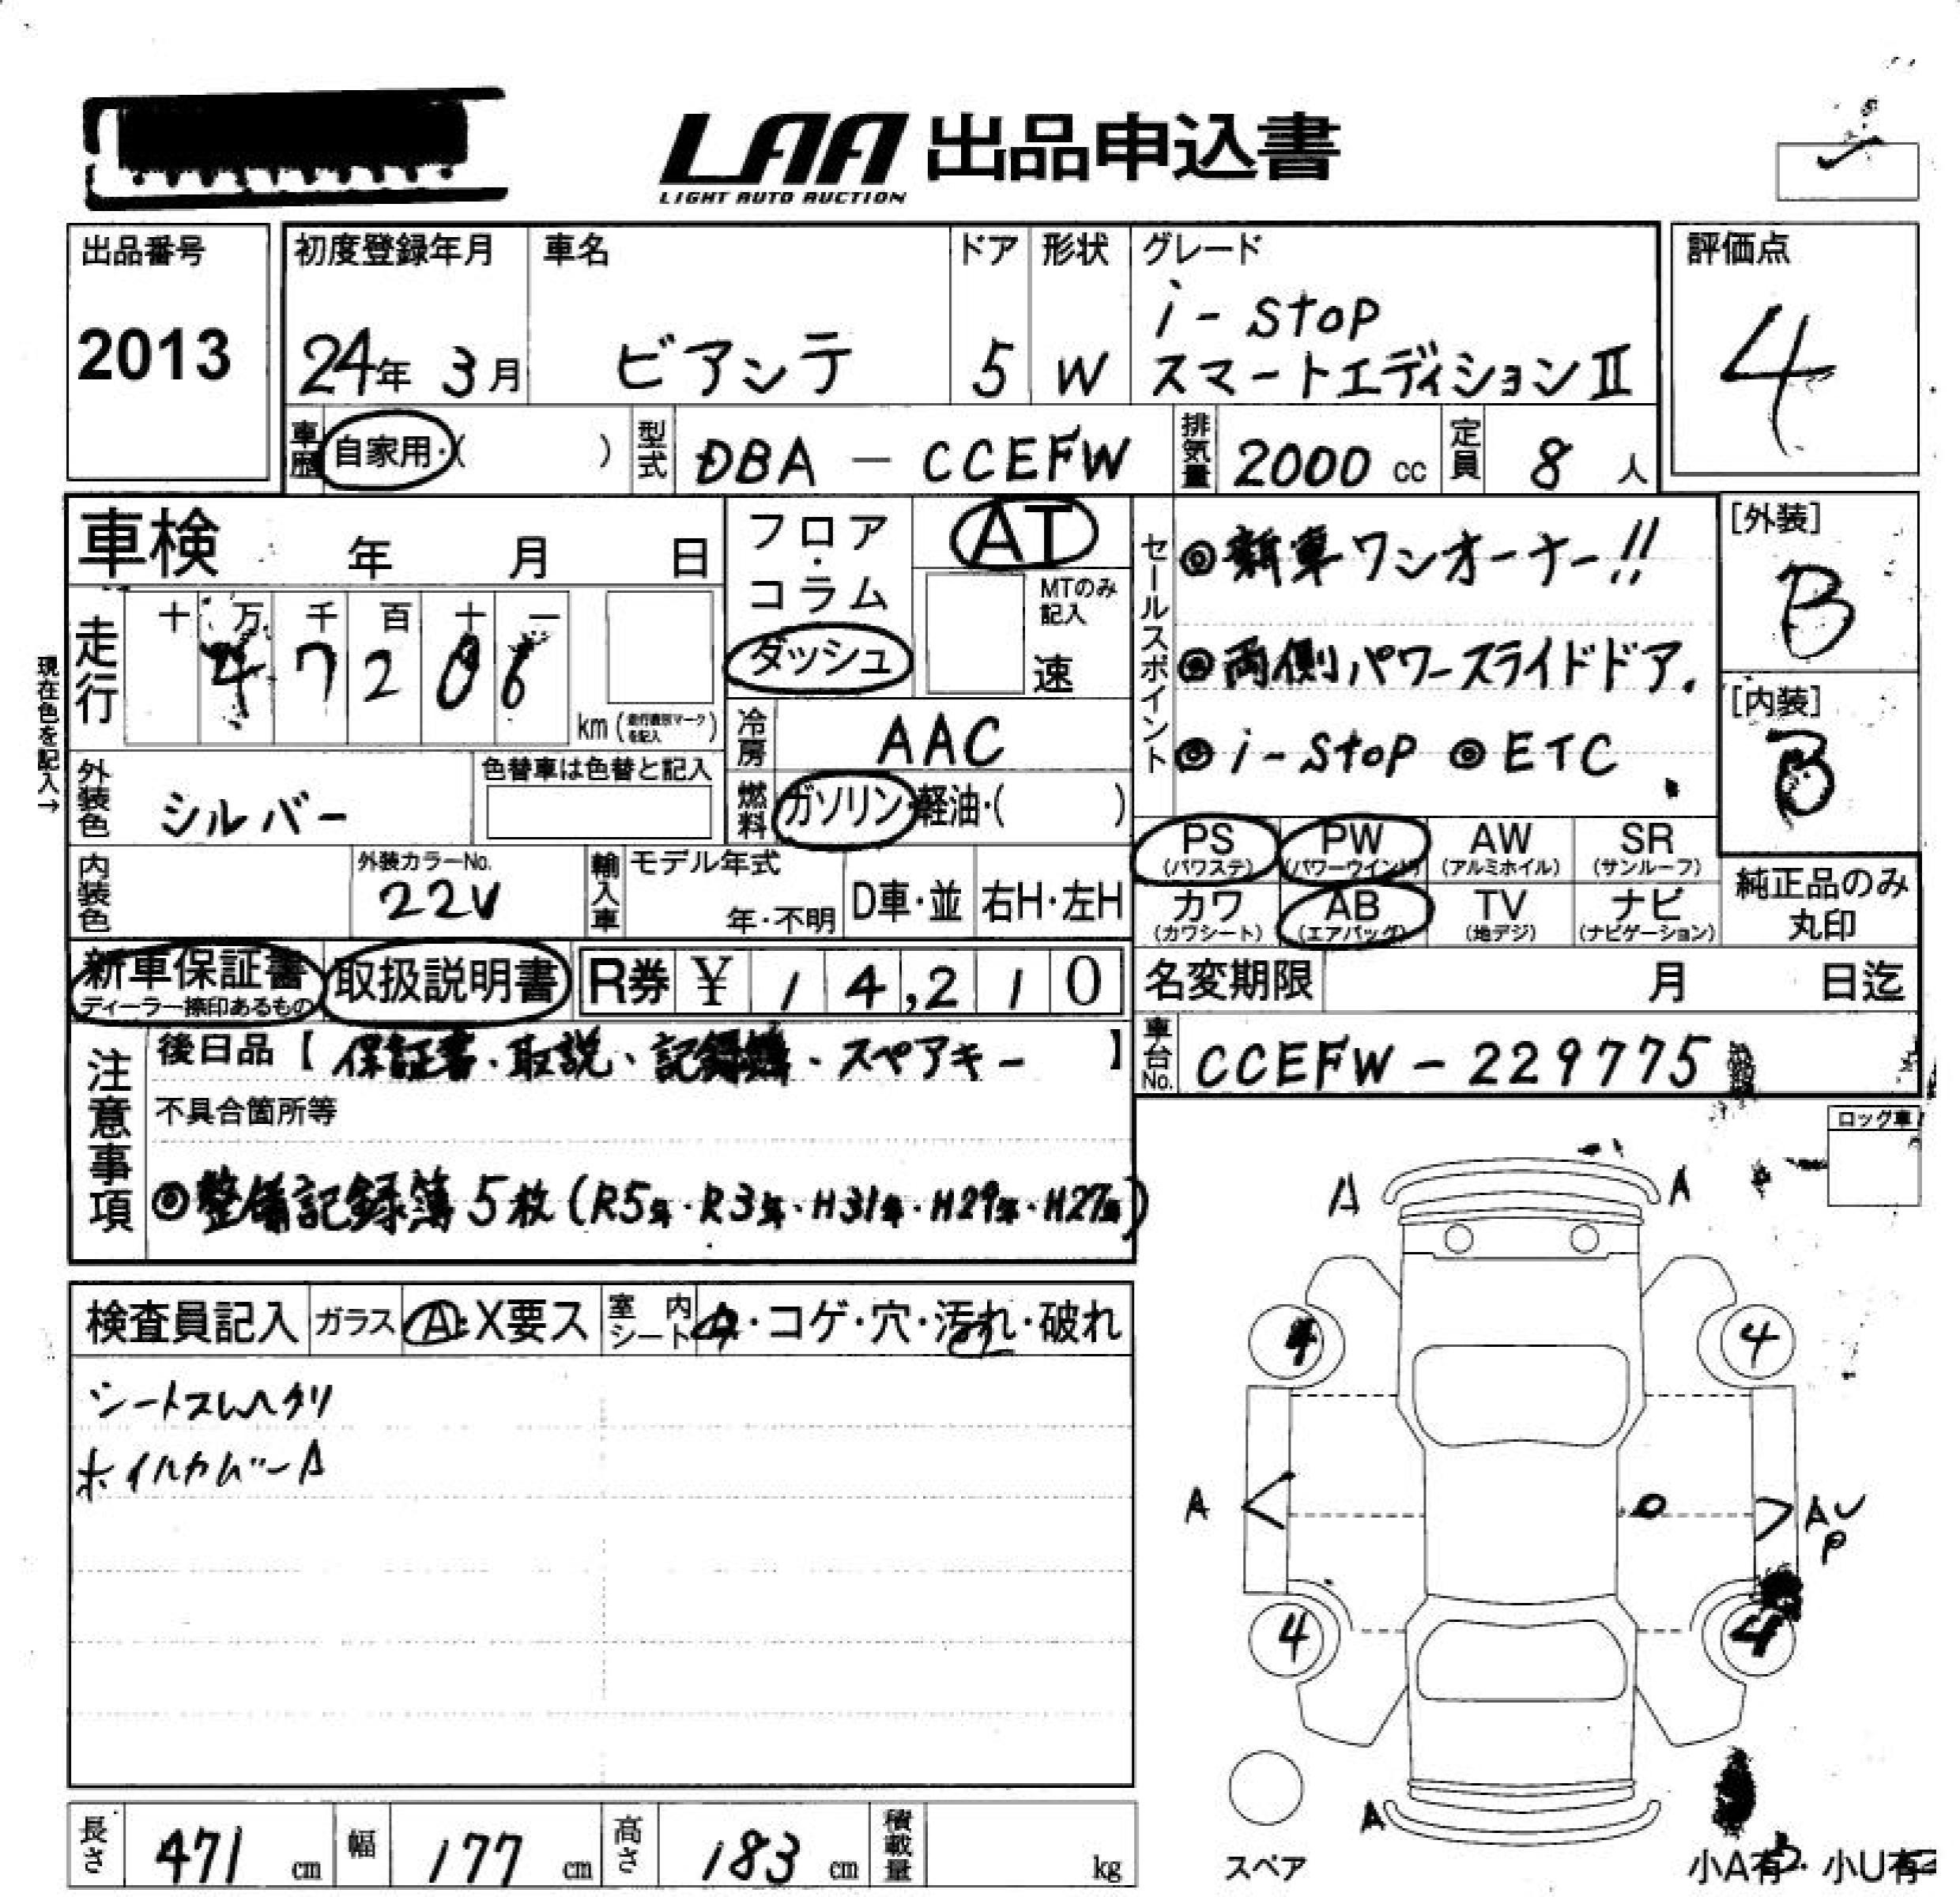 LAA 出品申込書
LIGHT AUTO AUCTION
出品番号 初度登録年月 車名 ドア 形状 グレード 評価点
2013 24年 3月 ビアンテ 5 W i-stop
スマートエディションⅡ 4
車歴 自家用・( ) 型式 DBA - CCEFW 排気量 2000 cc 定員 8 人
車検 年 月 日 フロア・コラム ダッシュ AT
MTのみ記入 速
走行 十 万 千 百 十 一
47206 km (走行書換マークを記入)
現在色を記入→
冷房 AAC
外装色 シルバー 色替車は色替と記入
燃料 ガソリン・軽油・( )
セールスポイント ◎新車ワンオーナー!!
◎両側パワースライドドア.
◎i-stop ◎ETC
[外装] B
[内装] B
内装色 外装カラーNo. 22V 輸入車 モデル年式 年・不明 D車・並 右H・左H
PS (パワステ) PW (パワーウインド) AW (アルミホイル) SR (サンルーフ)
カワ (カワシート) AB (エアバッグ) TV (地デジ) ナビ (ナビゲーション)
純正品のみ丸印
新車保証書 ディーラー捺印あるもの 取扱説明書 R券 ¥ 14,210
名変期限 月 日迄
車台No. CCEFW - 229775
注意事項 後日品【保証書・取説、記録簿、スペアキー】
不具合箇所等
◎整備記録簿5枚(R5年・R3年・H31年・H29年・H27年)
ロック車
検査員記入 ガラス A・X要ス 室内シート ・コゲ・穴・汚れ・破れ
シートスレヘタリ
ホイルカバーA
A A
4 4
A A U
P
4 4
A
スペア
小A有・小U有
長さ 471 cm 幅 177 cm 高さ 183 cm 積載量 kg